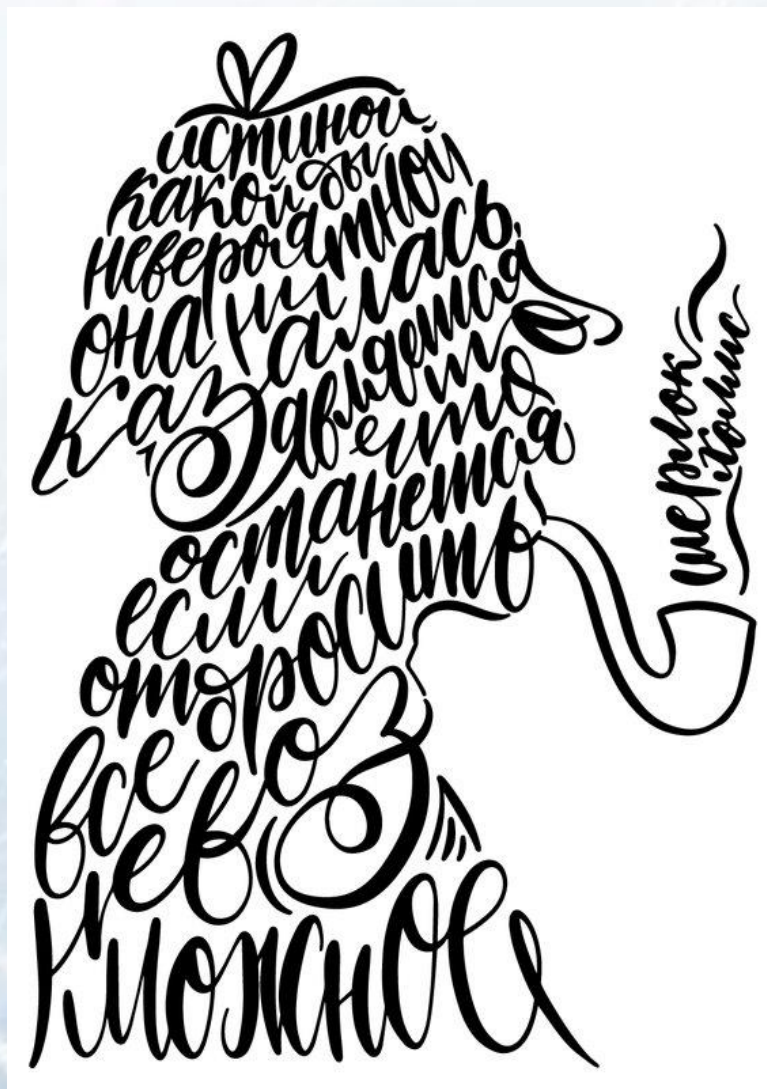 истиной
какой бы
невероятной
она ни
казалась,
является
то
что
останется
если
отбросить
все
невоз
можное
шерлок
холмс